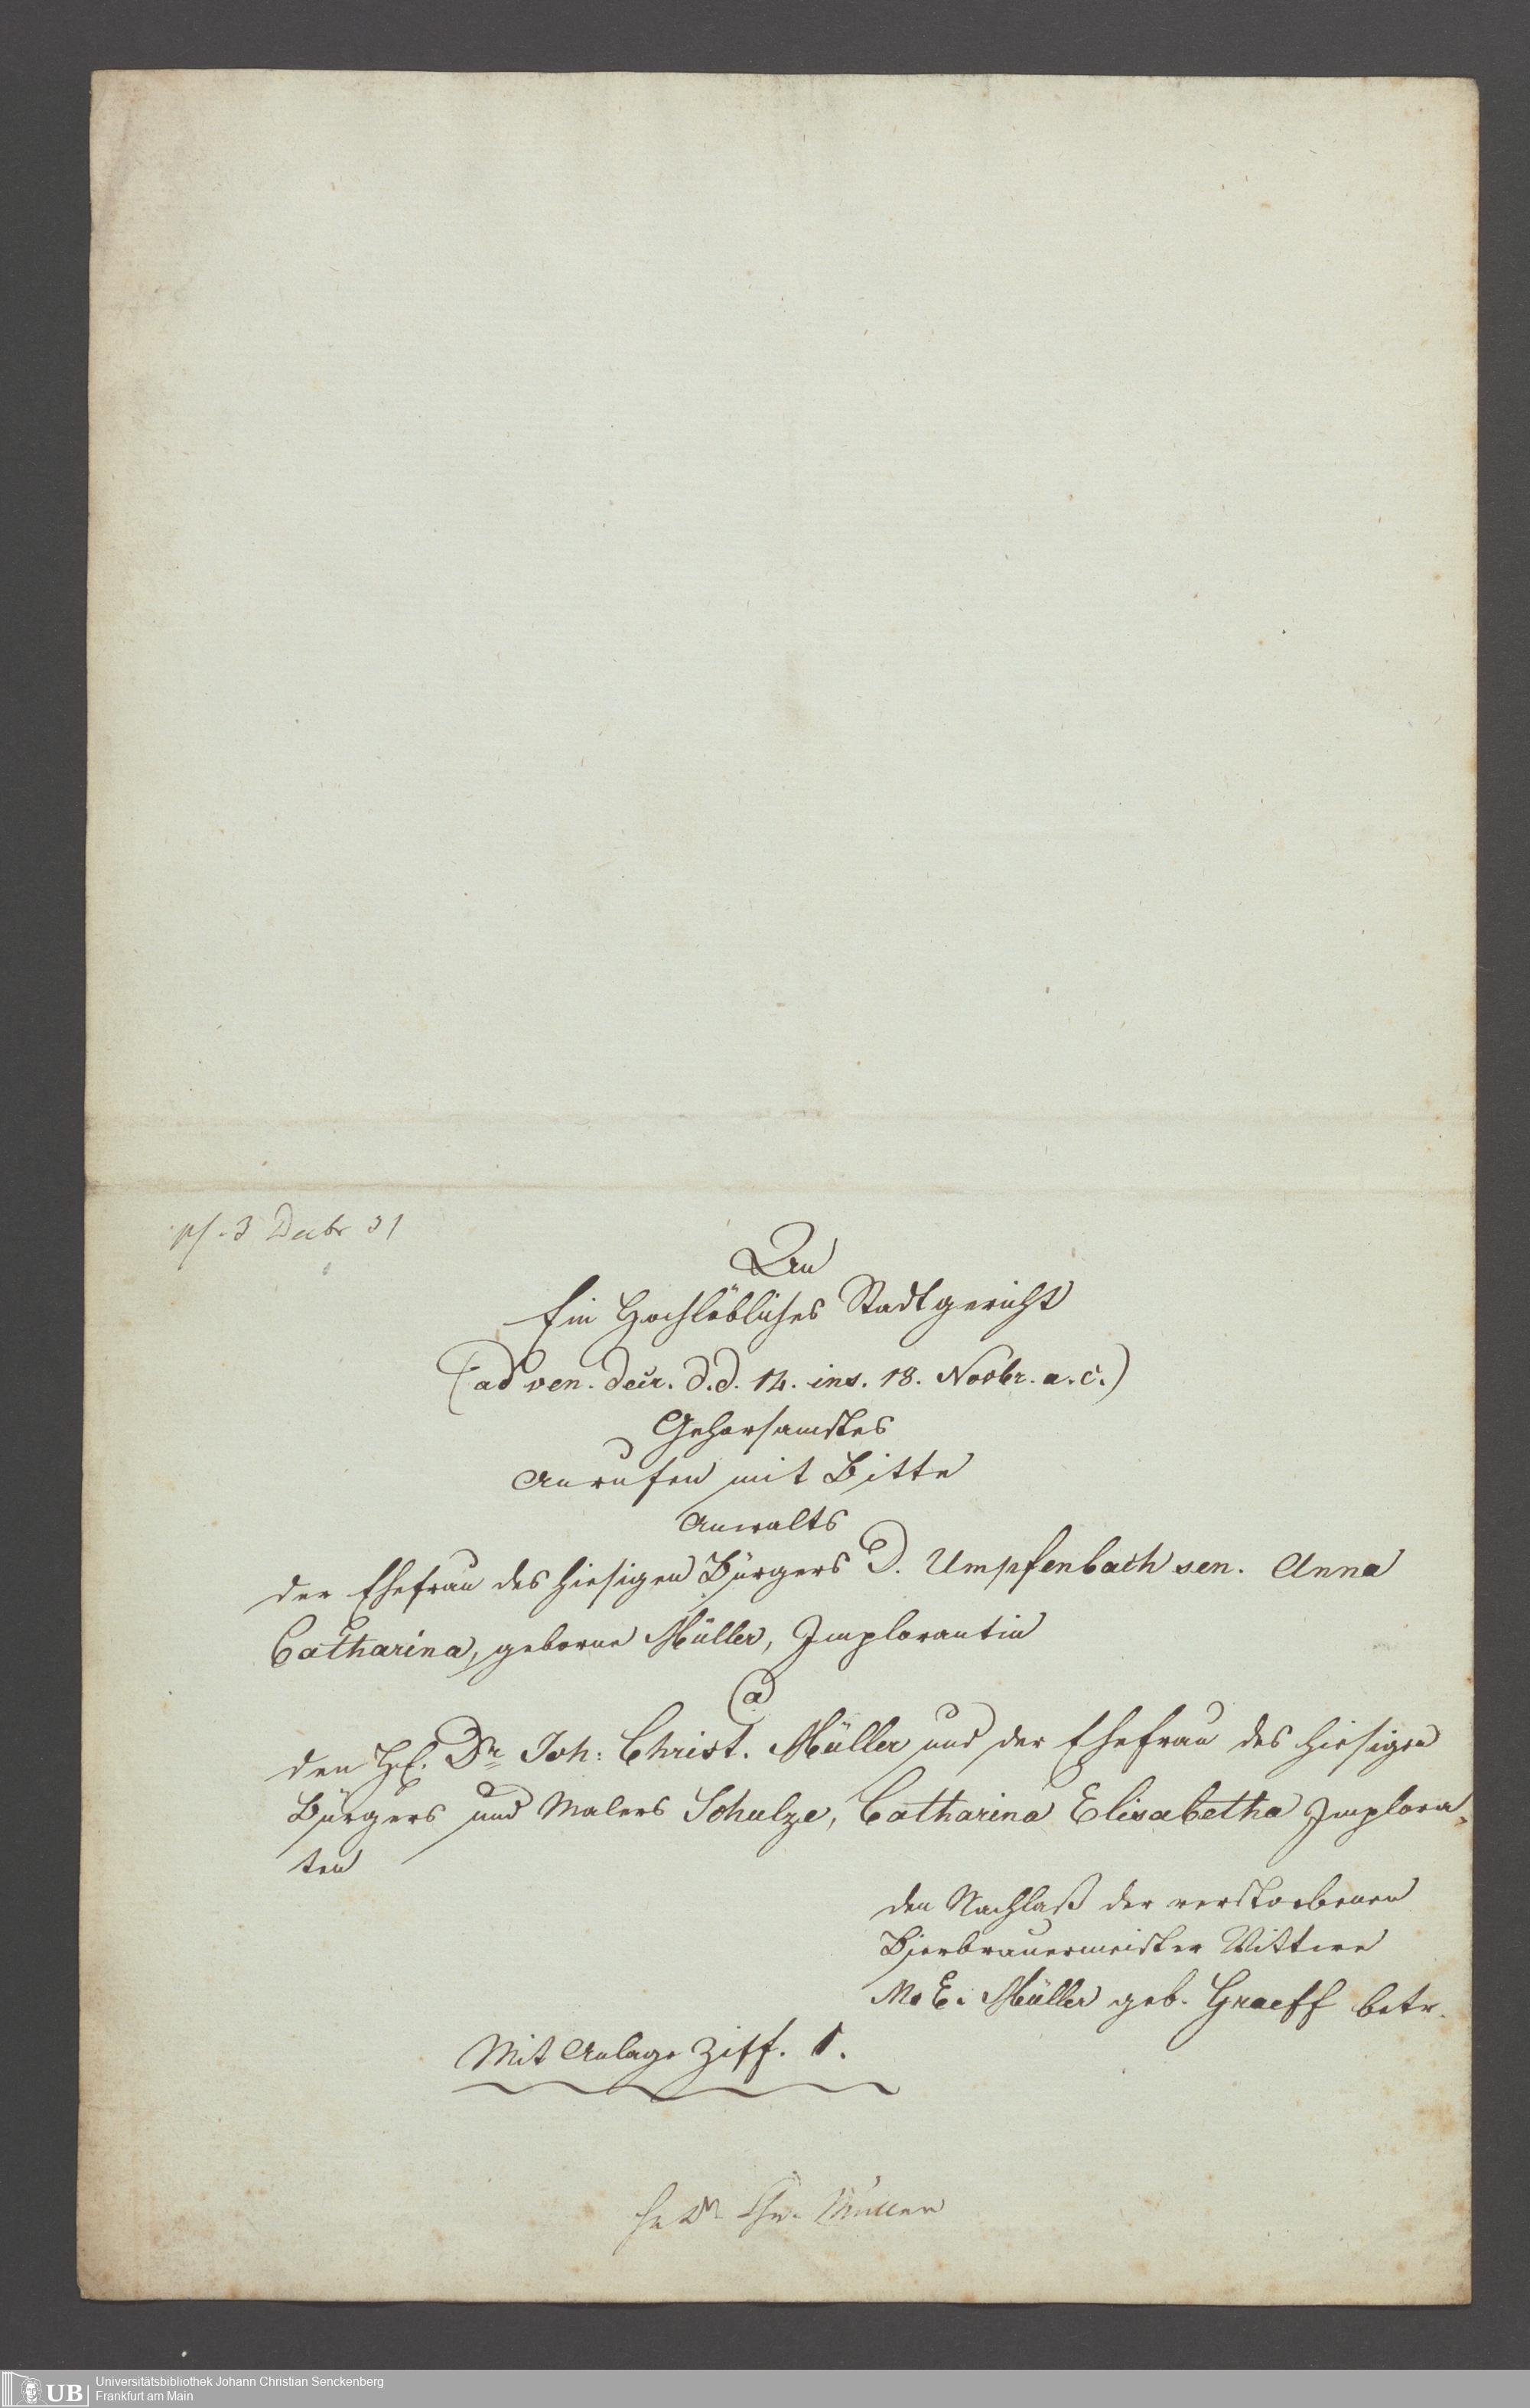 ps. 3 Decbr 31
An
Ein Hochlöbliches Stadtgericht
(ad ven. decr. d.d. 14. ins. 18. Novbr. a. c.)
Gehorsamstes
Anrufen mit Bitte
Anwalts
der Ehefrau des hiesigen Bürgers D. Umpfenbach sen. Anna
Catharina, geborne Müller, Implorantin
ca
den H. Dr Joh: Christ. Müller und der Ehefrau des hiesigen
Bürgers und Malers Schulze, Catharina Elisabetha Implora-
ten
den Nachlaß der verstorbenen
Bierbrauermeister Wittwe
M. E. Müller geb. Graeff betr.
Mit Anlage Ziff. 1.
Hr Dr Chr. Müller
UB
Universitätsbibliothek Johann Christian Senckenberg
Frankfurt am Main